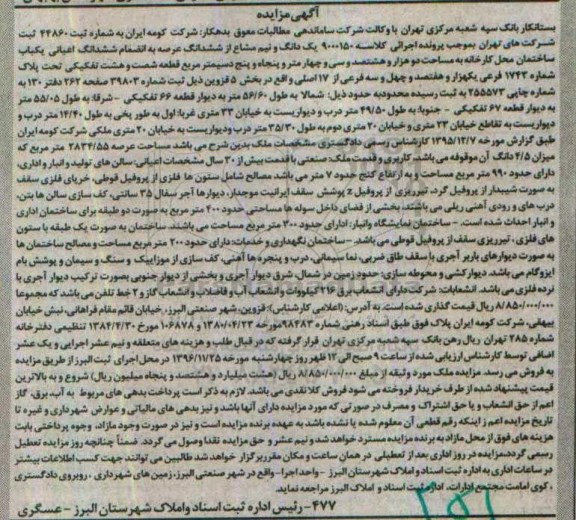 آگهی مزایده
بستانکار بانک سپه شعبه مرکزی تهران با وکالت شرکت ساماندهی مطالبات معوق بدهکار: شرکت کومه ایران به شماره ثبت ۴۴۸۶۰ ثبت
شرکت های تهران بموجب پرونده اجرائی کلاسه ۹۰۰۰۱۵۰ یک دانگ و نیم مشاع از ششدانگ عرصه به انضمام ششدانگ اعیانی یکباب
ساختمان محل کارخانه به مساحت دو هزار و هشتصد و سی و چهار متر و پنجاه و پنج دسیمتر مربع قطعه شصت و هشت تفکیکی تحت پلاک
شماره ۱۷۴۳ فرعی یکهزار و هفتصد و چهل و سه فرعی از ۱۷ اصلی واقع در بخش ۵ قزوین ذیل ثبت شماره ۳۹۸۰۳ صفحه ۲۶۲ دفتر ۱۳۰ به
شماره چاپی ۲۵۵۵۷۳ به ثبت رسیده محدوبه حدود ذیل: شمالا به طول ۵۶/۶۰ متر به دیوار قطعه ۶۶ تفکیکی - شرقا: به طول ۵۵/۰۵ متر
به دیوار قطعه ۶۷ تفکیکی - جنوبا: به طول ۴۹/۵۰ متر درب و دیواریست به خیابان ۳۳ متری غربا: اول به طور پخی به طول ۱۴/۴۰ متر درب و
دیواریست به تقاطع خیابان ۳۳ متری و خیابان ۲۰ متری دوم به طول ۳۵/۳۰ متر درب ودیواریست به خیابان ۲۰ متری ملکی شرکت کومه ایران
طبق گزارش مورخه ۱۳۹۵/۱۲/۷ کارشناس رسمی دادگستری مشخصات ملک بدین شرح می باشد مساحت عرصه ۲۸۳۴/۵۵ متر مربع که
میزان ۴/۵ دانگ آن موقوفه می باشد. کاربری و قدمت ملک: صنعتی با قدمت بیش از ۳۰ سال مشخصات اعیانی: سالن های تولید و انبار و اداری،
دارای حدود ۹۹۰ متر مربع مساحت و به ارتفاع کنج حدود ۷ متر می باشد مصالح شامل ستون ها فلزی از پروفیل قوطی، خرپای فلزی سقف
به صورت شیبدار از پروفیل گرد، تیرریزی از پروفیل z پوشش سقف ایرانیت موجدار، دیوارها آجر سفال ۳۵ سانتی، کف سازی سالن ها بتن،
درب های و رودی آهنی ریلی می باشند، بخشی از فضای داخل سوله ها مساحتی حدود ۴۰۰ متر مربع به صورت دو طبقه برای ساختمان اداری
و انبار احداث شده است. - ساختمان نمایشگاه وانبار: ادارای حدود ۳۰۰ متر مربع مساحت می باشند. ساختمان به صورت یک طبقه با ستون
های فلزی، تیرریزی سقف از پروفیل قوطی می باشد. - ساختمان نگهداری و خدمات: دارای حدود ۲۰۰ متر مربع مساحت و مصالح ساختمان ها
به صورت دیوارهای باربر آجری با سقف طاق ضربی، نما سیمانی، درب و پنجره ها آهنی، کف سازی از موزاییک و سنگ و سیمان و پوشش بام
ایزوگام می باشد. دیوارکشی و محوطه سازی: حدود زمین در شمال، شرق دیوار آجری و بخشی از دیوار جنوبی بصورت ترکیب دیوار آجری با
نرده فلزی می باشد. انشعابات: شرکت دارای انشعاب برق ۲۱۶ کیلووات و انشعاب آب و فاضلاب و انشعاب گاز و ۲ خط تلفن می باشد که مجموعا
۸/۸۵۰/۰۰۰/۰۰۰ ریال قیمت گذاری شده است. به آدرس: (اعلامی کارشناس): قزوین، شهر صنعتی البرز، خیابان قائم مقام فراهانی، نبش خیابان
بیهقی، شرکت کومه ایران پلاک فوق طبق اسناد رهنی شماره ۹۸۴۸۳ مورخه ۱۳۸۰/۰۴/۲۳ و ۱۰۶۸۷۸ مورخ ۱۳۸۴/۴/۳۰ تنظیمی دفترخانه
شماره ۲۸۵ تهران ریال رهن بانک سپه شعبه مرکزی تهران قرار گرفته که در قبال طلب و هزینه های متعلقه و نیم عشر اجرایی و یک عشر
اضافی توسط کارشناس ارزیابی شده از ساعت ۹ صبح الی ۱۲ ظهر روز چهارشنبه مورخه ۱۳۹۶/۱۱/۲۵ در محل اجرای ثبت البرز از طریق مزایده
به فروش می رسد. مزایده ملک مورد وثیقه از مبلغ ۸/۸۵۰/۰۰۰/۰۰۰ ریال (هشت میلیارد و هشتصد و پنجاه میلیون ریال) شروع و به بالاترین
قیمت پیشنهاد شده از طرف خریدار فروخته می شود فروش کلا نقدی می باشد. لازم به ذکر است پرداخت بدهی های مربوط به آب، برق، گاز
اعم از حق انشعاب و یا حق اشتراک و مصرف در صورتی که مورد مزایده دارای آنها باشد و نیز بدهی های مالیاتی و عوارض شهرداری و غیره تا
تاریخ مزایده اعم ز اینکه رقم قطعی آن معلوم شده یا نشده باشد به عهده برنده مزایده است و نیز در صورت وجود مازاد، وجوه پرداختی بابت
هزینه های فوق از محل مازاد به برنده مزایده مسترد خواهد شد و نیم عشر و حق مزایده نقدا وصول می گردد. ضمناً چنانچه روز مزایده تعطیل
رسمی گردد، مزایده در روز اداری بعد از تعطیلی در همان ساعت و مکان مقرر برگزار خواهد شد طالبین می توانند جهت کسب اطلاعات بیشتر
در ساعات اداری به اداره ثبت اسناد و املاک شهرستان البرز - واحد اجرا - واقع در شهر صنعتی البرز، زمین های شهرداری، روبروی دادگستری
، کوی امامت مجتمع ادارات، اداره ثبت اسناد و املاک البرز مراجعه نماید.
۴۷۷- رئیس اداره ثبت اسناد و املاک شهرستان البرز - عسگری